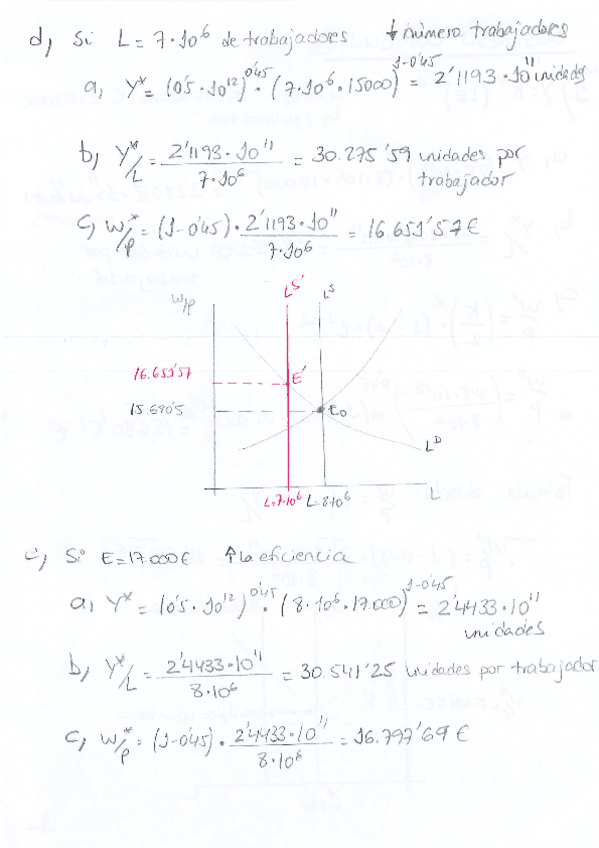 d) Si L = 7·10⁶ de trabajadores ↓ número trabajadores
a) Y* = (0'5·10¹²)^0'45 · (7·10⁶·15000)^1-0'45 = 2'1193·10¹¹ unidades
b) Y*/L = 2'1193·10¹¹ / 7·10⁶ = 30.275'59 unidades por trabajador
c) W/P* = (1-0'45) · 2'1193·10¹¹ / 7·10⁶ = 16.651'57 €
W/P
L^S'
L^S
16.651'57
E'
15.680'5
E₀
L^D
L=7·10⁶ L=8·10⁶ L
e) Si E=17.000€ ↑ la eficiencia
a) Y* = (0'5·10¹²)^0'45 · (8·10⁶·17.000)^1-0'45 = 2'4433·10¹¹
unidades
b) Y*/L = 2'4433·10¹¹ / 8·10⁶ = 30.541'25 unidades por trabajador
c) W/P* = (1-0'45) · 2'4433·10¹¹ / 8·10⁶ = 16.797'69 €